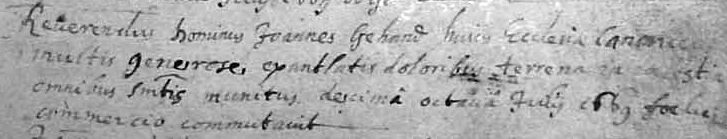 Reverendus Dominus Joannes Gehand huius Ecclesia Canonicus
multis generose, exantlatis doloribus terrena
omnibus Smtis munitus descimâ octavâ Julij 1669 foelici
commercio commutavit